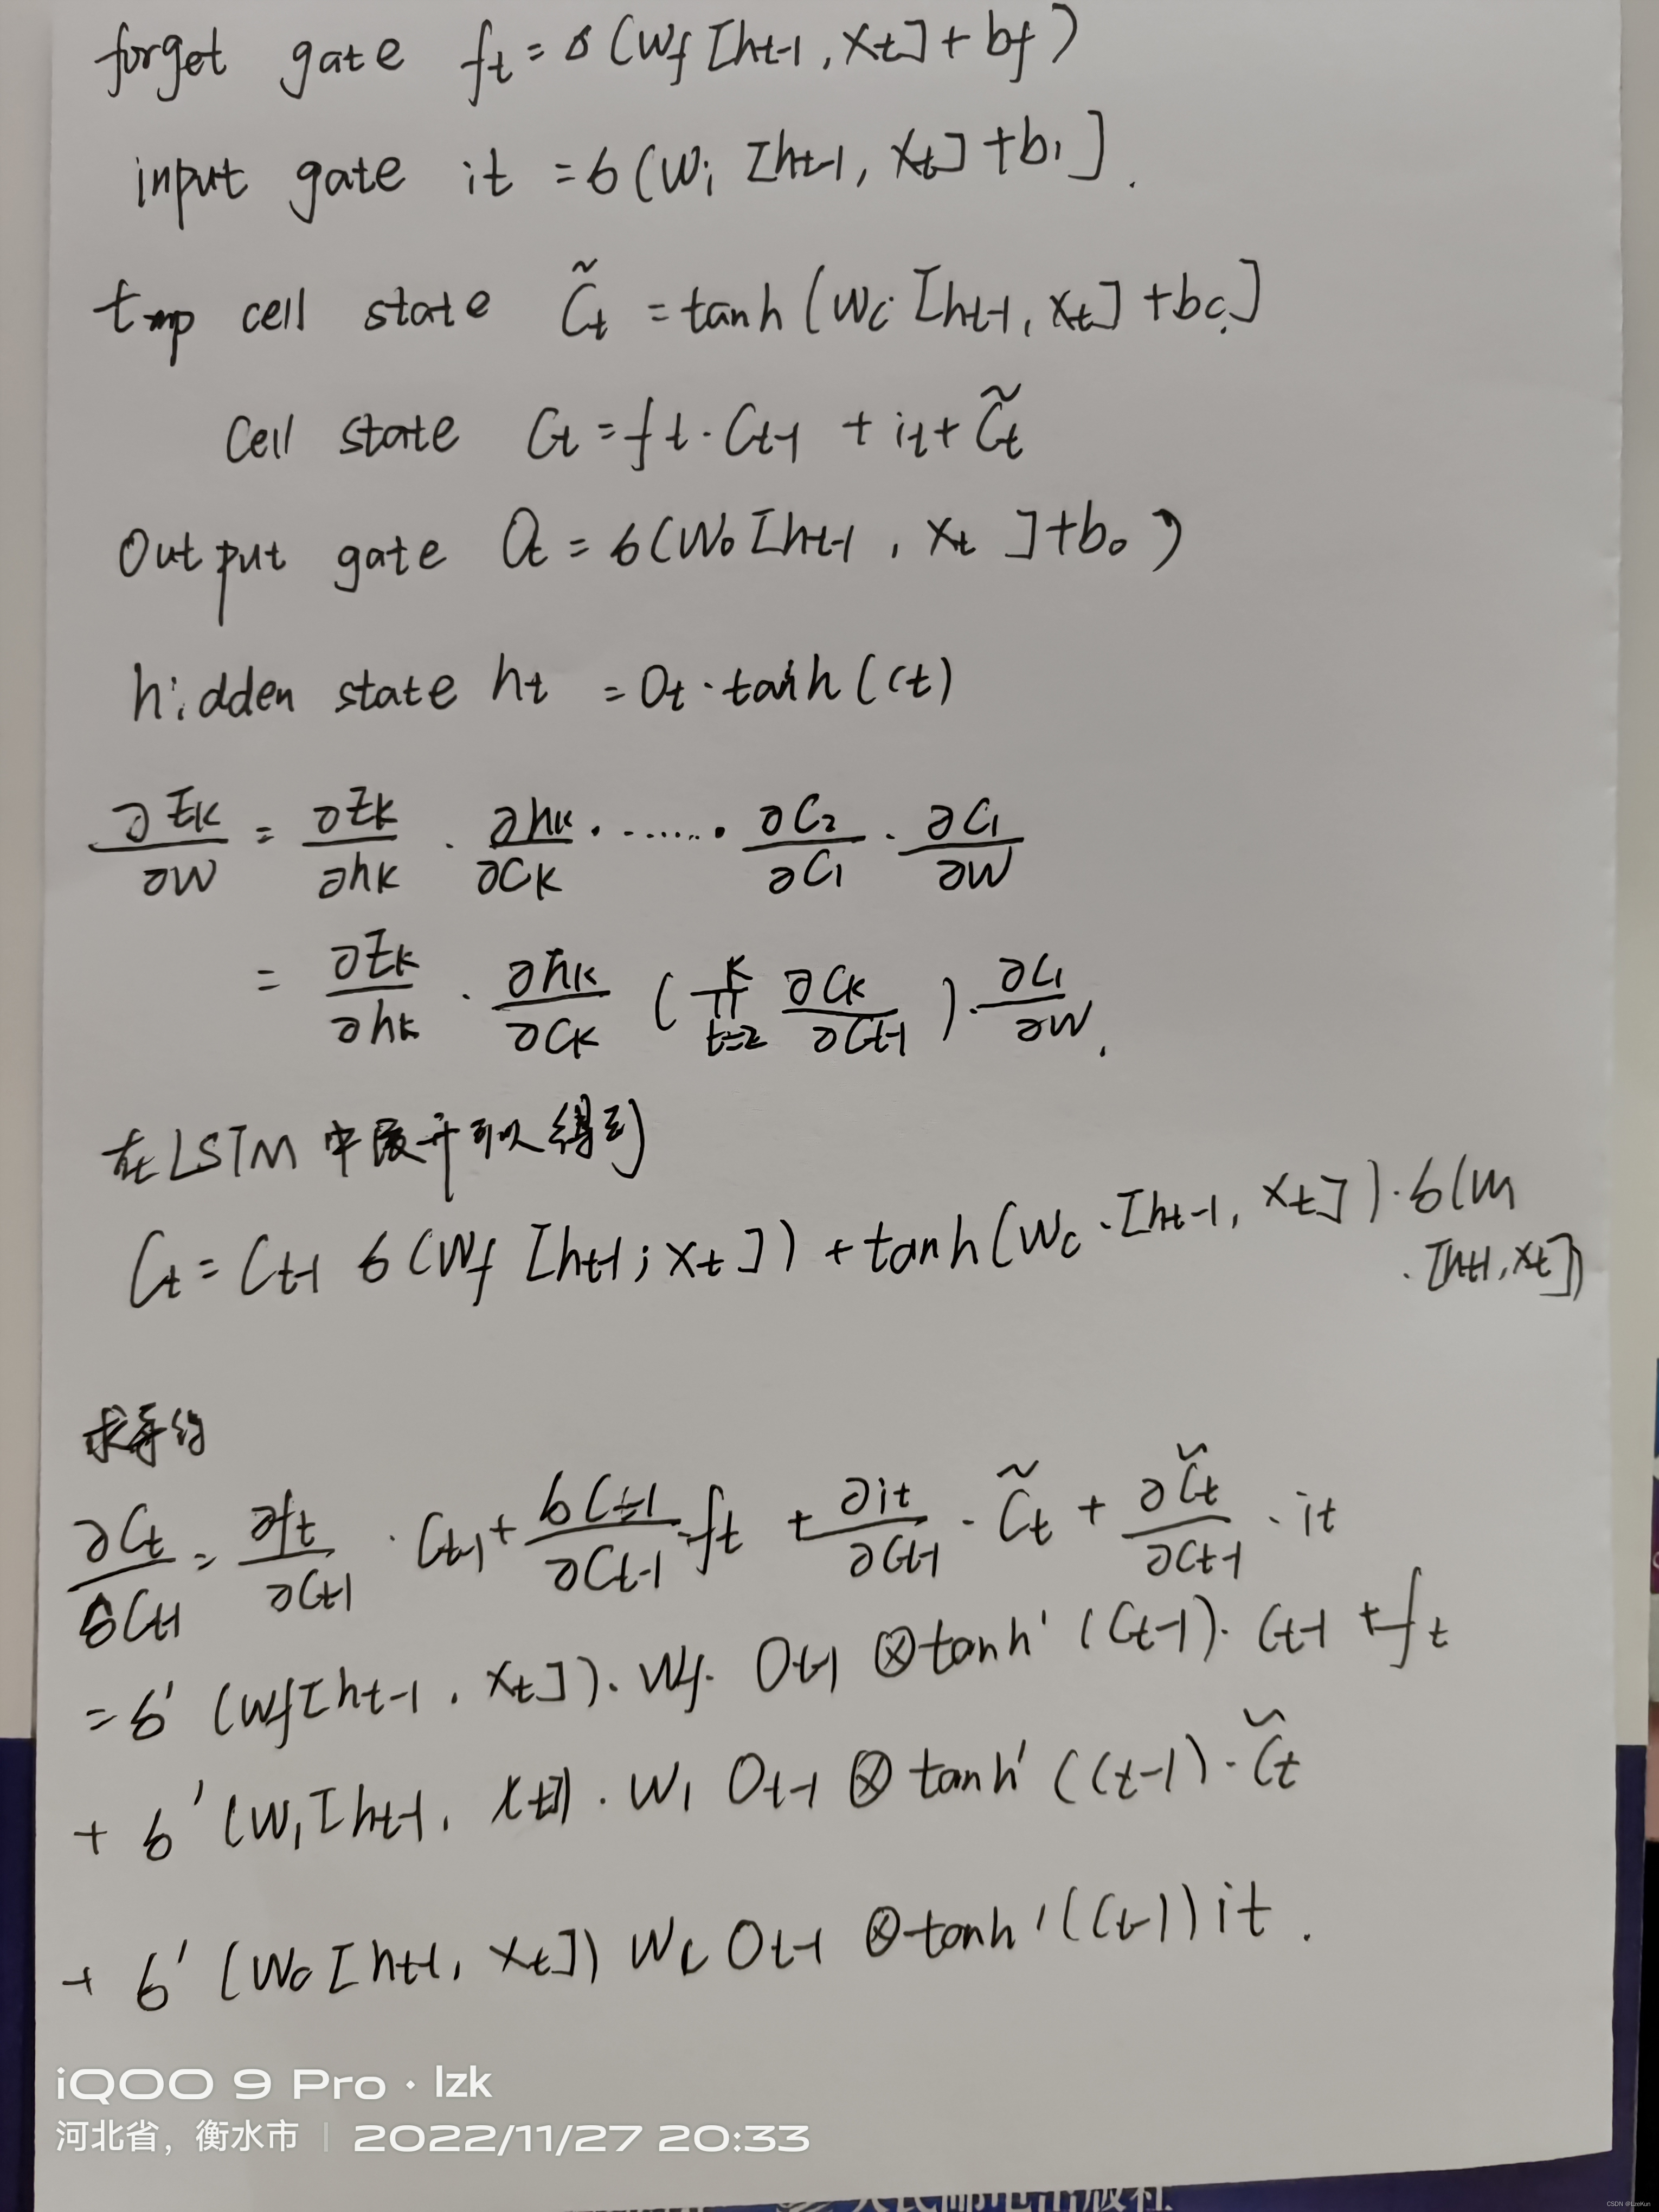 forget gate ft = σ(Wf [ht-1, xt] + bf)
input gate it = σ(Wi [ht-1, xt] + bi].
tmp cell state C̃t = tanh(Wc [ht-1, xt] + bc]
Cell state Ct = ft · Ct-1 + it + C̃t
Output gate Ot = σ(Wo [ht-1, xt] + bo)
hidden state ht = Ot · tanh(Ct)
∂Ek/∂W = ∂Ek/∂hk · ∂hk/∂Ck · ...... · ∂C2/∂C1 · ∂C1/∂W
= ∂Ek/∂hk · ∂hk/∂Ck (∏ t=2 k ∂Ck/∂Ct-1) · ∂C1/∂W.
在LSTM中展开可以得到
Ct = Ct-1 σ(Wf [ht-1; xt]) + tanh(Wc · [ht-1, xt]) · σ(Wi
· [ht-1, xt])
求导得
∂Ct/∂Ct-1 = ∂ft/∂Ct-1 · Ct-1 + ∂Ct-1/∂Ct-1 · ft + ∂it/∂Ct-1 · C̃t + ∂C̃t/∂Ct-1 · it
= σ' (Wf [ht-1, xt]) · Wf · Ot-1 ⊗ tanh' (Ct-1) · Ct-1 + ft
+ σ' (Wi [ht-1, xt]) · Wi Ot-1 ⊗ tanh' (Ct-1) · C̃t
+ σ' (Wc [ht-1, xt]) Wc Ot-1 ⊗ tanh' (Ct-1) it.
iQOO 9 Pro · lzk
河北省，衡水市 | 2022/11/27 20:33
人民邮电出版社
CSDN @LzeKun